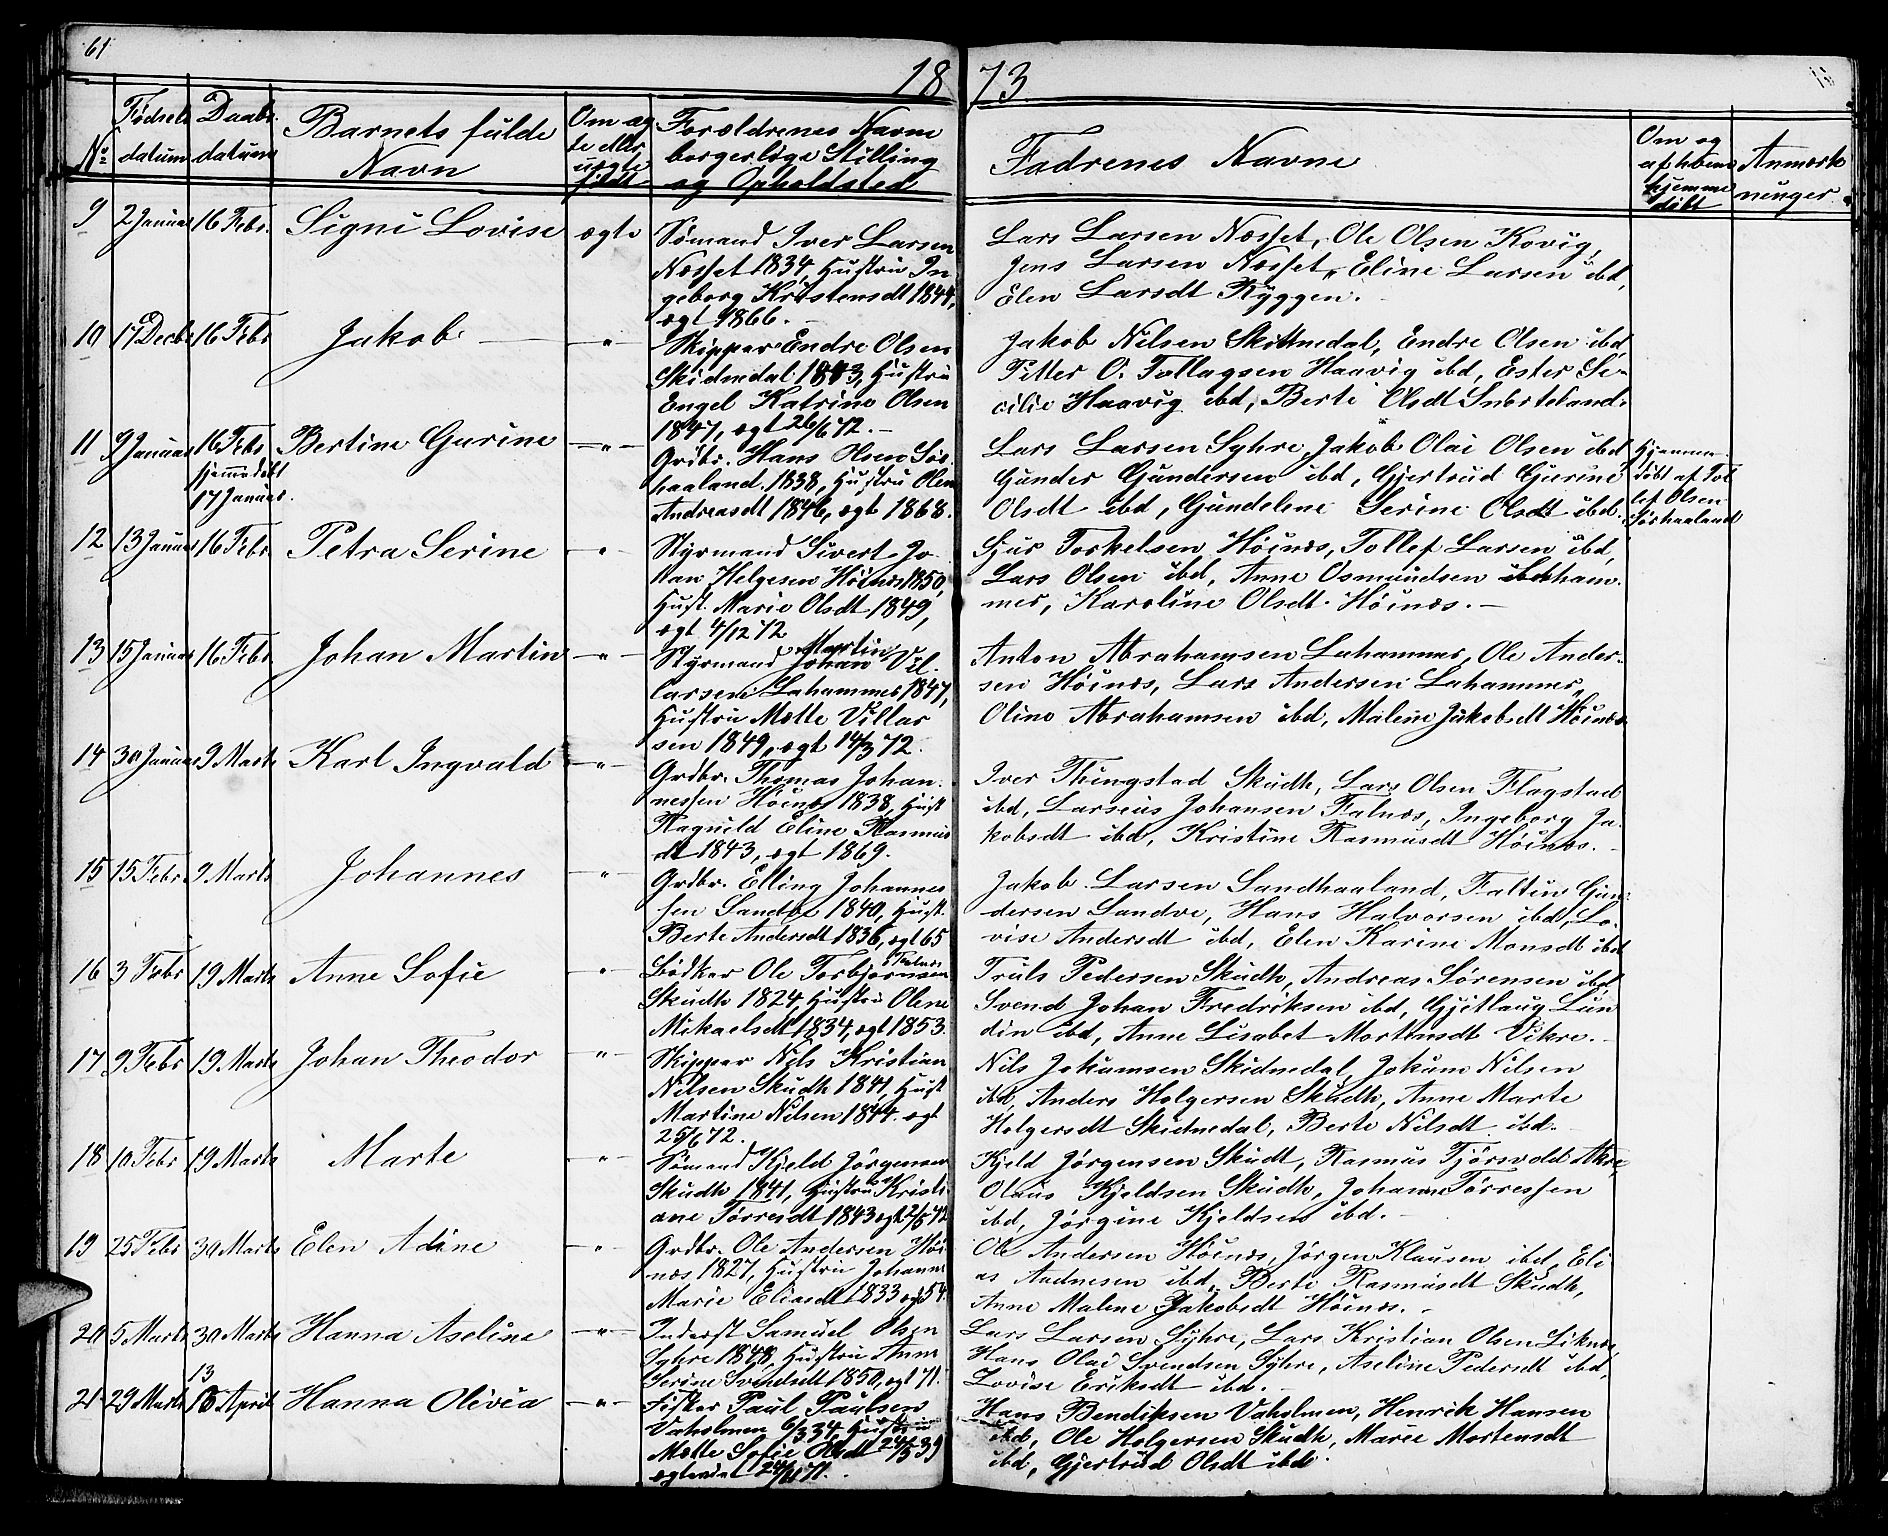 61
18 73
No
Fødsels datum
Daabs datum
Barnets fulde Navn
Om æg te eller uægte født
Forældrenes Navne borgerlige Stilling og Opholdsted
Fadrenes Navne
Om og af hvem hjemme døbt
Anmærk ninger
9 2 Januar 16 Febr. Signi Lovise ægte
Sømand Iver Larsen
Næsset 1834, Hustru In
geborg Kristensdt 1844,
ægt 1866.
Lars Larsen Næsset, Ole Olsen Kovig,
Jens Larsen Næsset, Eline Larsen ibd,
Elen Larsdt Ryggen.
10 17 Decbr 16 Febr Jakob — " —
Skipper Endre Olsen
Skidnedal 1843, Hustru
Engel Katrine Olsen
1847, ægt 26/6 72. —
Jakob Nilsen Skidnedal, Endre Olsen ibd
Pitter O. Tollagsen Haavig ibd, Ester Se-
cilie Haavig ibd, Berte Olsdt Snørteland.
11 9 Januar 16 Febr Bertine Gurine — " —
hjemmedøbt
17 Januar.
Grdbr. Hans Olsen Sør
haaland. 1838, Hustru Olene
Andreasdt 1846, ægt 1868.
Lars Larsen Syhre, Jakob Olai Olsen ibd
Gunder Gundersen ibd, Gjertrud Gurine
Olsdt ibd, Gundelene Serine Olsdt ibd.
Hjemme
døbt af Tol
lef Olsen
Sørhaaland
12 13 Januar 16 Febr. Petra Serine — " —
Styrmand Sivert Jo-
han Helgesen Høines 1850,
Hust. Marie Olsdt 1849,
ægt 4/12 72
Sjur Torkelsen Høines, Tollef Larsen ibd,
Lars Olsen ibd, Anne Osmundsen
mer, Karoline Olsdt. Høines. —
13 15 Januar 16 Febr Johan Martin — " —
Martin
Styrmand Johan Vil-
larsen Lahammer 1847,
Hustru Mette Villar
sen 1849, ægt 14/3 72.
Anton Abrahamsen Lahammer, Ole Ander-
sen Høines, Lars Andersen Lahammer,
Oline Abrahamsen ibd, Malene Jakobsdt Høines
14 30 Januar 9 Marts Karl Ingvald — " —
Grdbr. Thomas Johan-
nessen Høines 1838, Hust
Ragnild Eline Rasmus
dt 1843, ægt 1869.
Iver Thingstad Skudh, Lars Olsen Flagstad
ibd, Larseus Johansen Falnes, Ingeborg Ja-
kobsdt ibd, Kristine Rasmusdt Høines. —
15 15 Febr 9 Marts Johannes — " —
Grdbr. Elling Johannes
sen Sandve 1840, Hust.
Berte Andersdt 1836, ægt 65
Jakob Larsen Sandhaaland, Faltin Gun-
dersen Sandve, Hans Halvorsen ibd, Lo-
vise Andersdt ibd, Elen Karine Monsdt ibd
16 3 Febr 19 Marts Anne Sofie "
Bødker Ole Torbjørnsen
Skudh 1824, Hustru Olene
Mikaelsdt 1834, ægt 1853.
Truls Pedersen Skudh, Andreas Sørensen ibd,
Svend Johan Fredriksen ibd, Gjitlaug Lun
din ibd, Anne Lisabet Mortensdt Vikre. —
17 9 Febr 19 Marts Johan Theodor — " —
Skipper Nils Kristian
Nilsen Skudh 1841, Hust
Martine Nilsen 1844. ægt
25/6 72.
Nils Jokumsen Skidnedal, Jokum Nilsen
ibd, Anders Holgersen Skudh, Anne Marte
Holgersdt Skidnedal, Berte Nilsdt ibd.
18 10 Febr 19 Marts Marte — " —
Sømand Kjeld Jørgensen
Skudh 1841, Hustru Kristi
ane Tørresdt 1843 ægt 2/5 72
Kjeld Jørgensen Skudt, Rasmus Tjørsvold Akre,
Olaus Kjeldsen Skudh, Johanne Tørressen
ibd, Jørgine Kjeldsen ibd. —
19 25 Febr 30 Marts Elen Adine — " —
Grdbr. Ole Andersen Høi
nes, 1827, Hustru Johanne
Marie Eliasdt 1833 ægt 54.
Ole Andersen Høines, Jørgen Klausen ibd, Eli-
as Andnesen ibd, Berte Rasmusdt Skudh,
Anne Malene Jakobsdt Høines. —
20 5 Marts 30 Marts Hanna Aseline — " —
Inderst Samuel Olsen
Syhre 1848, Hustru Anne
Serine Svendsdt 1850, ægt 71.
Lars Larsen Syhre, Lars Kristian Olsen Liknes,
Hans Olai Svendsen Syhre, Aseline Pedersdt ibd,
Lovise Eriksdt ibd. —
13
21 29 Marts April Hanna Olivia — " —
Fisker Paul Paulsen
Vaholmen 6/3 34, Hustru
Mette Sofie Olsdt 24/3 39
ægteviet 24/11 71.
Hans Bendiksen Vaholmen, Henrik Hansen
ibd, Ole Holgersen Skudh, Maree Mortensdt
ibd, Gjertrud Olsdt ibd.